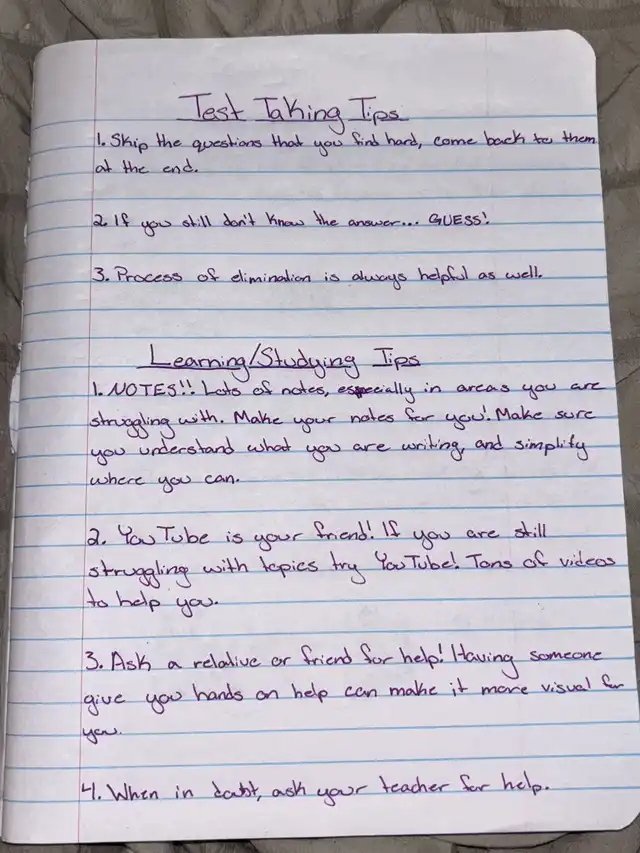 Test Taking Tips
1. Skip the questions that you find hard, come back to them
at the end.
2. If you still don't know the answer... GUESS!
3. Process of elimination is always helpful as well.
Learning/Studying Tips
1. NOTES!! Lots of notes, especially in areas you are
struggling with. Make your notes for you! Make sure
you understand what you are writing, and simplify
where you can.
2. YouTube is your friend! If you are still
struggling with topics try YouTube! Tons of videos
to help you.
3. Ask a relative or friend for help! Having someone
give you hands on help can make it more visual for
you.
4. When in doubt, ask your teacher for help.